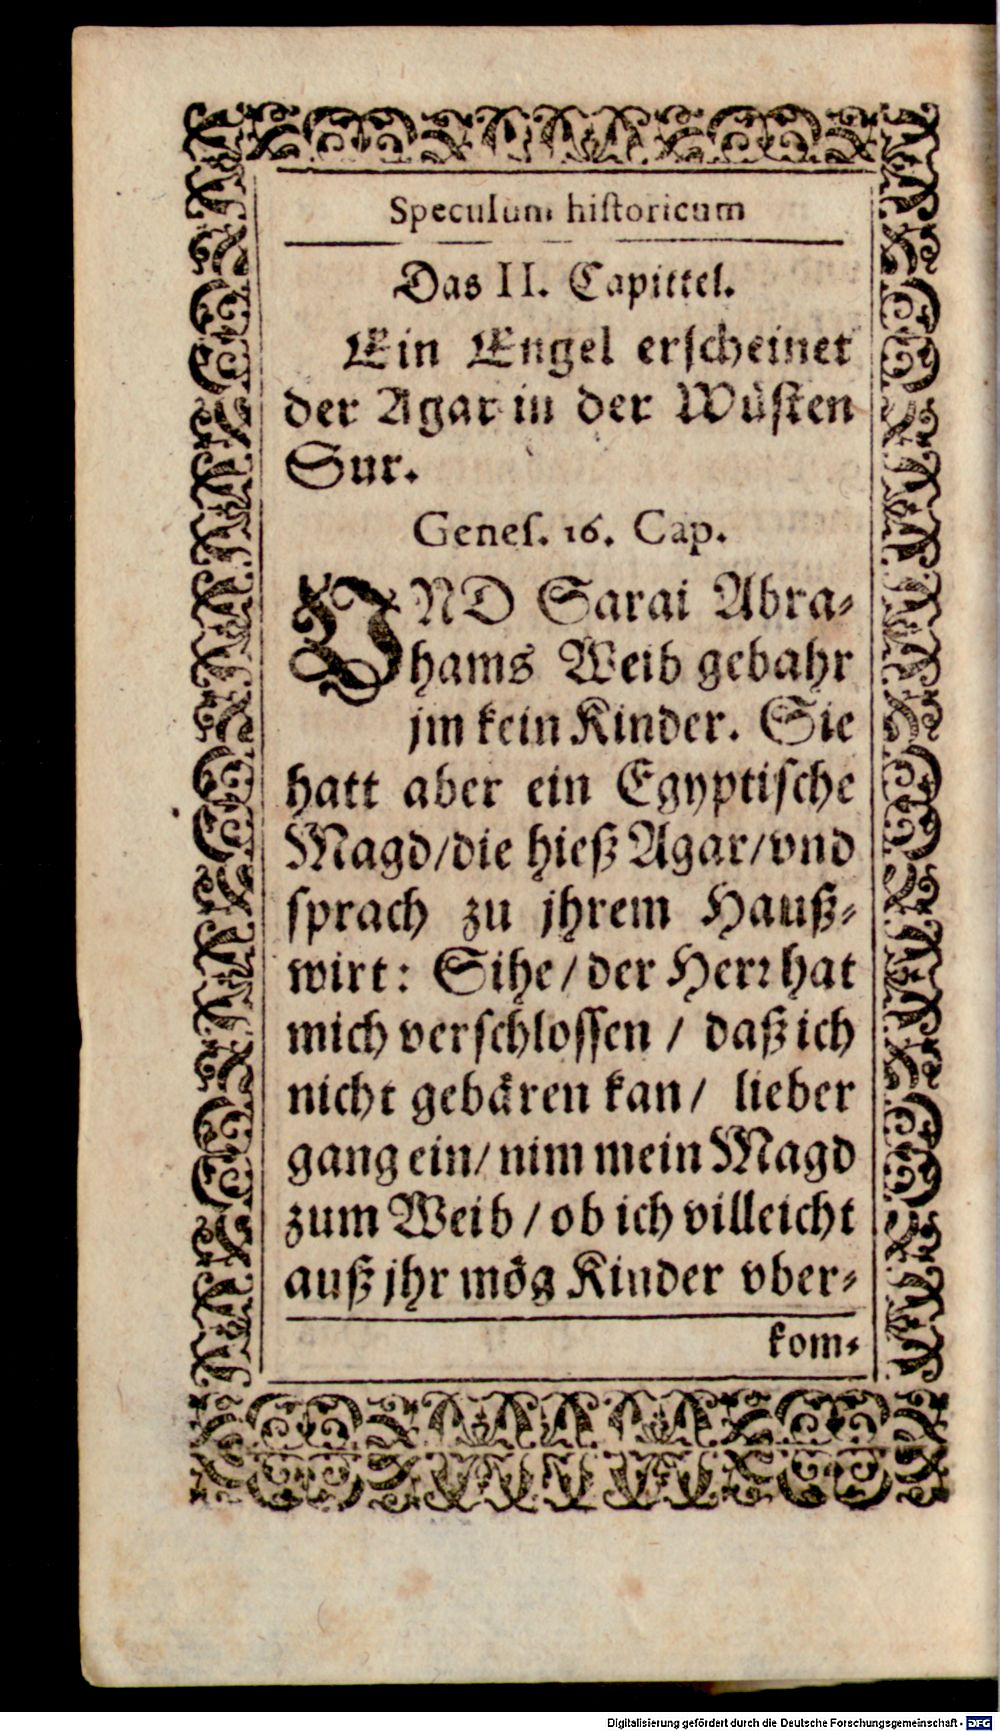 Speculum hiſtoricum
Das II. Capittel.
Ein Engel erſcheinet
der Agar in der Wüſten
Sur.
Geneſ. 16. Cap.
VND Sarai Abra⸗
hams Weib gebahr
jm kein Kinder. Sie
hatt aber ein Egyptiſche
Magd/die hieß Agar/vnd
ſprach zu jhrem Hauß⸗
wirt: Sihe/der Herꝛ hat
mich verſchloſſen / daß ich
nicht gebären kan/ lieber
gang ein/nim mein Magd
zum Weib/ob ich villeicht
auß jhr mög Kinder vber⸗
kom⸗
Digitalisierung gefördert durch die Deutsche Forschungsgemeinschaft - DFG